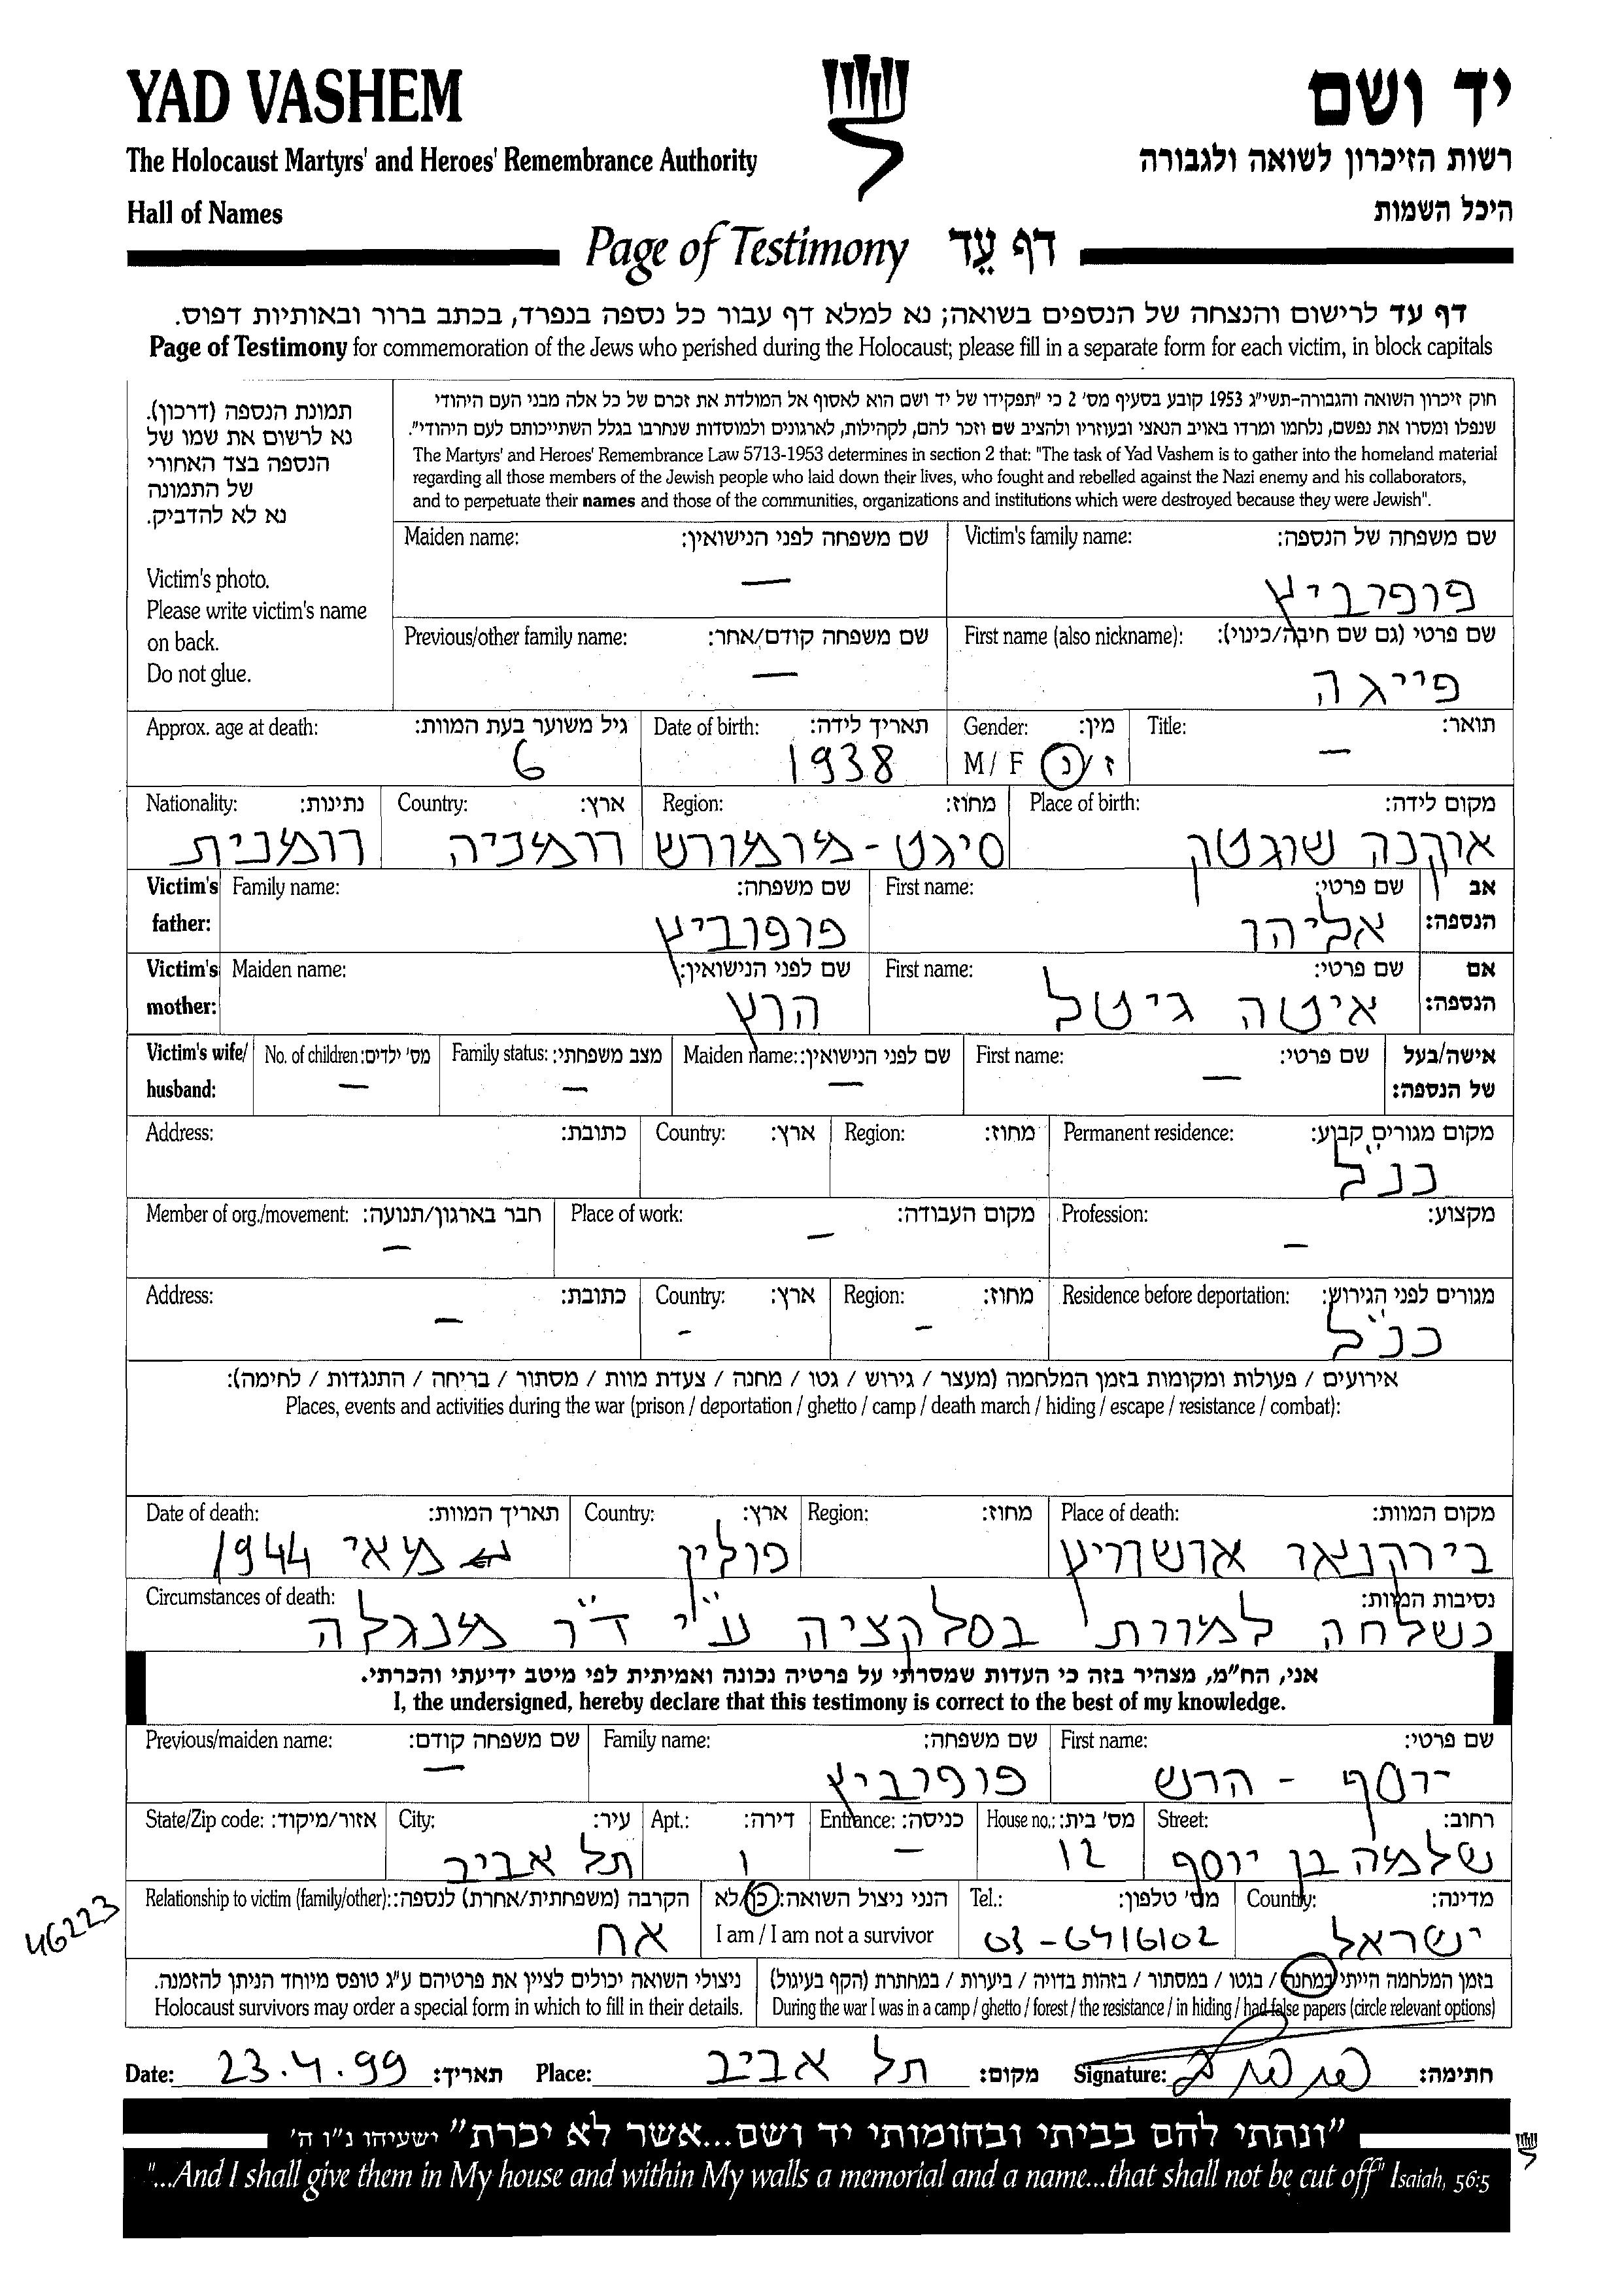 YAD VASHEM
יד ושם
The Holocaust Martyrs' and Heroes' Remembrance Authority
רשות הזיכרון לשואה ולגבורה
Hall of Names
היכל השמות
Page of Testimony דף עֵד
דף עד לרישום והנצחה של הנספים בשואה; נא למלא דף עבור כל נספה בנפרד, בכתב ברור ובאותיות דפוס.
Page of Testimony for commemoration of the Jews who perished during the Holocaust; please fill in a separate form for each victim, in block capitals
חוק זיכרון השואה והגבורה-תשי"ג 1953 קובע בסעיף מס' 2 כי "תפקידו של יד ושם הוא לאסוף אל המולדת את זכרם של כל אלה מבני העם היהודי
שנפלו ומסרו את נפשם, נלחמו ומרדו באויב הנאצי ובעוזריו ולהציב שם וזכר להם, לקהילות, לארגונים ולמוסדות שנחרבו בגלל השתייכותם לעם היהודי".
The Martyrs' and Heroes' Remembrance Law 5713-1953 determines in section 2 that: "The task of Yad Vashem is to gather into the homeland material
regarding all those members of the Jewish people who laid down their lives, who fought and rebelled against the Nazi enemy and his collaborators,
and to perpetuate their names and those of the communities, organizations and institutions which were destroyed because they were Jewish".
תמונת הנספה (דרכון).
נא לרשום את שמו של
הנספה בצד האחורי
של התמונה
נא לא להדביק.
Victim's photo.
Please write victim's name
on back.
Do not glue.
שם משפחה של הנספה: Victim's family name:
פופוביץ
שם משפחה לפני הנישואין: Maiden name:
—
שם פרטי (גם שם חיבה/כינוי): First name (also nickname):
פייגה
שם משפחה קודם/אחר: Previous/other family name:
—
תואר: Title:
—
מין: Gender:
ז/נ M / F
תאריך לידה: Date of birth:
1938
גיל משוער בעת המוות: Approx. age at death:
6
מקום לידה: Place of birth:
אוקנה שוגטק
מחוז: Region:
סיגט - מרמורש
ארץ: Country:
רומניה
נתינות: Nationality:
רומנית
אב הנספה: Victim's father:
שם פרטי: First name:
אליהו
שם משפחה: Family name:
פופוביץ
אם הנספה: Victim's mother:
שם פרטי: First name:
איטה גיטל
שם לפני הנישואין: Maiden name:
הרץ
אישה/בעל של הנספה: Victim's wife/ husband:
שם פרטי: First name:
—
שם לפני הנישואין: Maiden name:
—
מצב משפחתי: Family status:
—
מס' ילדים: No. of children:
—
מקום מגורים קבוע: Permanent residence:
כנ"ל
מחוז: Region:
ארץ: Country:
כתובת: Address:
מקצוע: Profession:
—
מקום העבודה: Place of work:
—
חבר בארגון/תנועה: Member of org./movement:
—
מגורים לפני הגירוש: Residence before deportation:
כנ"ל
מחוז: Region:
-
ארץ: Country:
-
כתובת: Address:
—
אירועים / פעולות ומקומות בזמן המלחמה (מעצר / גירוש / גטו / מחנה / צעדת מוות / מסתור / בריחה / התנגדות / לחימה):
Places, events and activities during the war (prison / deportation / ghetto / camp / death march / hiding / escape / resistance / combat):
מקום המוות: Place of death:
בירקנאר אושוויץ
מחוז: Region:
ארץ: Country:
פולין
תאריך המוות: Date of death:
מאי 1944
נסיבות המוות: Circumstances of death:
נשלחה למוות בסלקציה ע"י ד"ר מנגלה
אני, הח"מ, מצהיר בזה כי העדות שמסרתי על פרטיה נכונה ואמיתית לפי מיטב ידיעתי והכרתי.
I, the undersigned, hereby declare that this testimony is correct to the best of my knowledge.
שם פרטי: First name:
יוסף - הרש
שם משפחה: Family name:
פופוביץ
שם משפחה קודם: Previous/maiden name:
—
רחוב: Street:
שלמה בן יוסף
מס' בית: House no.:
12
כניסה: Entrance:
—
דירה: Apt.:
1
עיר: City:
תל אביב
אזור/מיקוד: State/Zip code:
מדינה: Country:
ישראל
מס' טלפון: Tel.:
03-6416102
הנני ניצול השואה: כן/לא
I am / I am not a survivor
הקרבה (משפחתית/אחרת) לנספה: Relationship to victim (family/other):
אח
46223
בזמן המלחמה הייתי במחנה / בגטו / במסתור / בזהות בדויה / ביערות / במחתרת (הקף בעיגול)
During the war I was in a camp / ghetto / forest / the resistance / in hiding / had false papers (circle relevant options)
ניצולי השואה יכולים לציין את פרטיהם ע"ג טופס מיוחד הניתן להזמנה.
Holocaust survivors may order a special form in which to fill in their details.
חתימה: Signature:
מקום: תל אביב Place:
תאריך: 23.4.99 Date:
"ונתתי להם בביתי ובחומותי יד ושם...אשר לא יכרת" ישעיהו נ"ו ה'
"...And I shall give them in My house and within My walls a memorial and a name...that shall not be cut off" Isaiah, 56:5